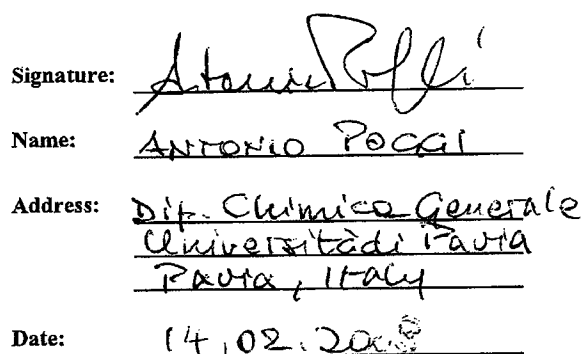 Signature: Antonio Poggi
Name: ANTONIO POGGI
Address: Dip. Chimica Generale
Università di Pavia
Pavia, Italy
Date: 14.02.200